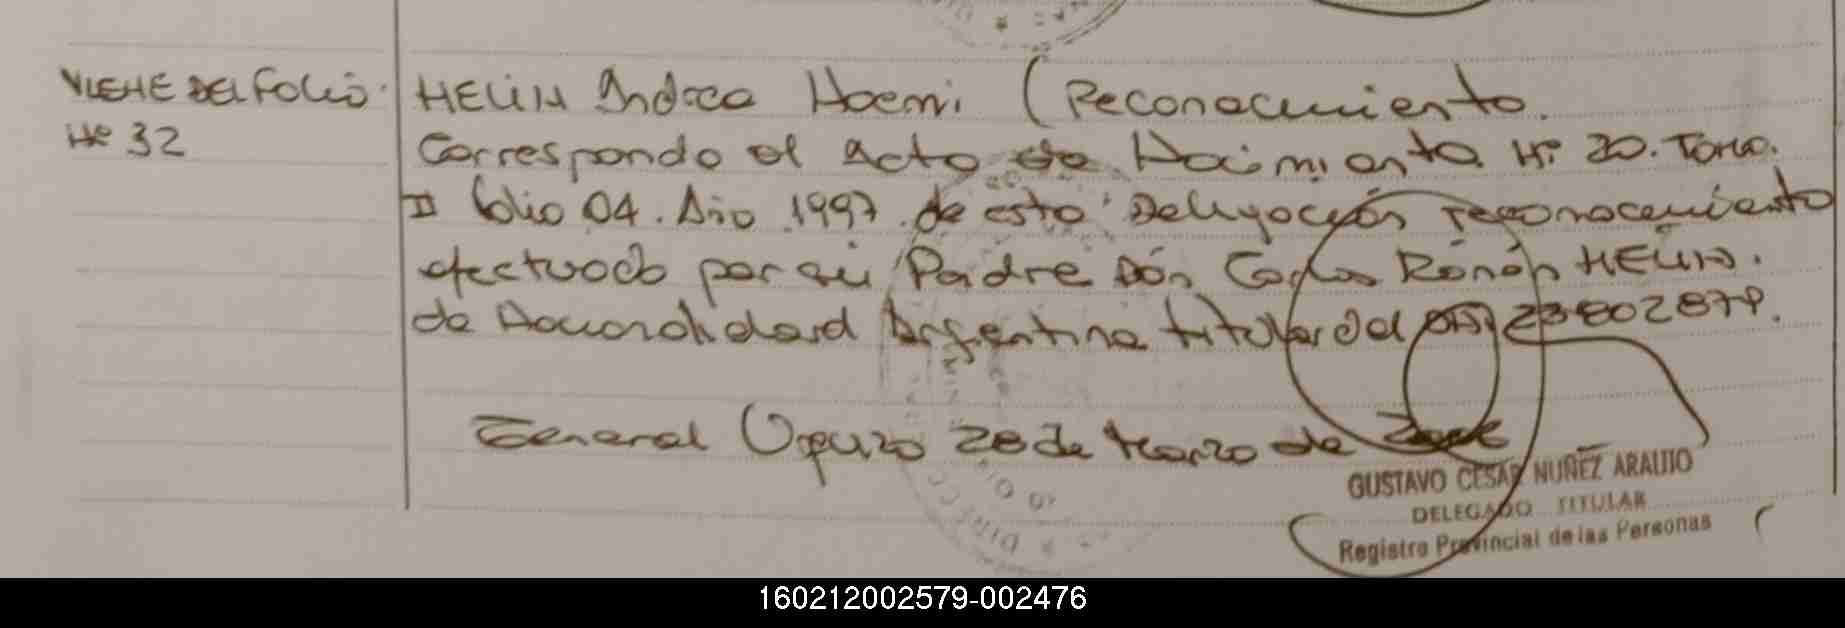 VIENE DEL FOLIO
Nº 32
HELIN Andrea Noemi (Reconocimiento.
Corresponde al Acta de Nacimiento Nº 20. Tomo.
II folio 04. Año 1997. de esta Delegación reconocimiento
efectuado por su Padre Dón Carlos Ramón HELIN.
de Nacionalidad Argentina titular del DNI 23802879.
General Urquiza 28 de Marzo de
GUSTAVO CESAR NUÑEZ ARAUJO
DELEGADO TITULAR
Registro Provincial de las Personas
160212002579-002476